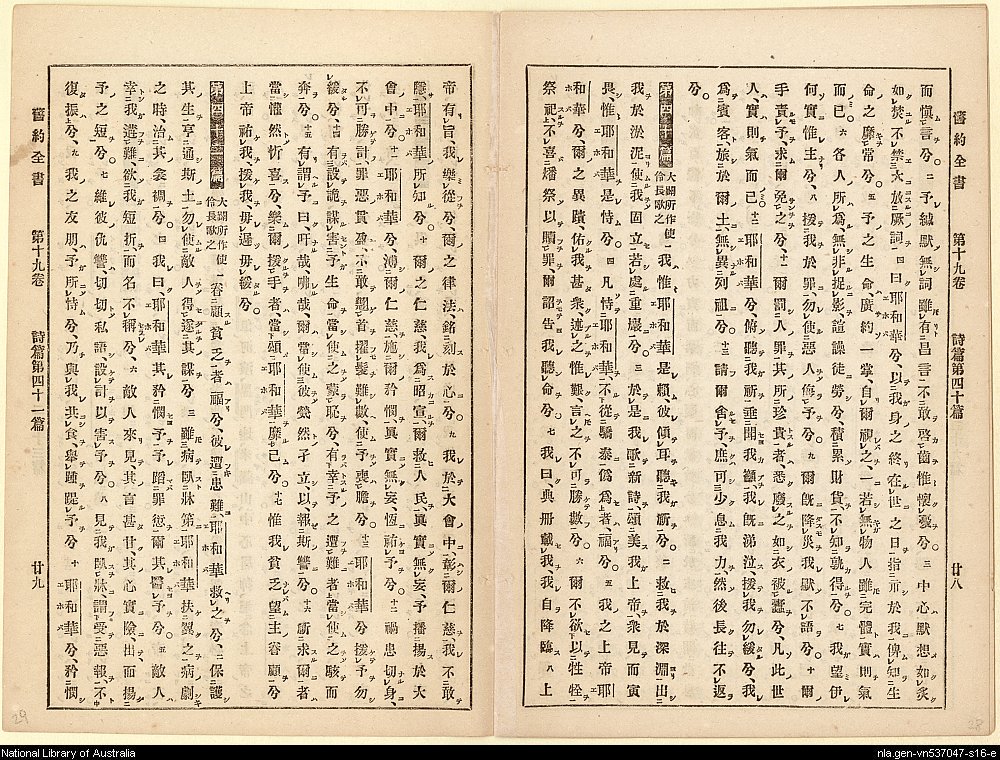 舊約全書 第十九卷 詩篇第四十篇 廿八
而愼言兮。二予緘默無詞雖有昌言不敢啓齒惟懷憂兮。三中心默想如炙
如焚不禁大放厥詞。四曰耶和華兮、以我身之終在世之日指示於我俾知生
命之靡常兮。五予之生命廣約一掌、自爾視之、一若無物人雖完體實則氣
而已。六各人所爲、無非捉影諠譟徒勞兮、積累財貨不知孰得兮。七我望伊
何實惟主兮、八援我於衆罪、勿使惡人侮予兮。九爾旣降災我默不語兮。十爾
手責予、求爾免之兮、十一爾罰人罪其所珍貴者、悉廢之如衣被蠹兮、凡此世
人實則氣而已。十二耶和華兮、俯聽我祈垂聞我籲、我旣涕泣援我勿緩兮、我
爲賓客、旅於爾土、無異列祖兮。十三請爾舍予、庶可少息我力然後長往不返
兮。
第四十篇 大闢所作使伶長歌之 一我惟耶和華是賴、彼傾耳聽我龥兮。二救我於深淵出
我於淤泥使我固立若處重巖兮。三於是我歌新詩、頌美我上帝、衆見而寅
畏、惟耶和華是恃兮。四凡恃耶和華不從驕泰僞爲者、福兮。五我之上帝耶
和華兮、爾之異蹟、佑我甚衆、述之惟艱、言之不可勝數兮。六爾不欲以牲牷
祭祀、不喜燔祭以贖罪、爾詔告我、聽命兮。七我曰、典册載我、我自降臨、八上
帝有旨、我樂從兮、爾之律法、銘刻於心兮。九我於大會中、彰爾仁慈、我不敢
隱、耶和華所知兮。十爾之仁慈、我爲昭宣、爾救人民、眞實無妄、予播揚於大
會中兮。十一耶和華兮、溥爾仁慈、施爾矜憫、眞實無妄、恒祐予兮。十二禍患切身、
不可勝計、罪惡貫盈、不敢翹首、擢髮難數、使予喪膽兮。十三耶和華兮、援予勿
緩兮、十四有設詭謀害予生命、當使之蒙恥兮、有幸予之遭難者、當使之駭而
奔兮。十五有謂予曰、吁哉嘯哉、爾當使彼煢然孑立以報斯讐兮。十六祈求爾者
當懽然忻喜兮、樂爾援手者、當頌耶和華靡已兮。十七惟我貧乏望主眷顧兮
上帝祐我、援我、毋遲毋緩兮。
第四十一篇 大闢所作使伶長歌之 一眷顧貧乏者福兮、彼遭患難、耶和華救之兮、二保護
其生亨通斯土勿使敵人得遂其謀兮。三雖病臥牀笫、耶和華扶翼之、病劇
之時、治其衾裯兮。四我曰耶和華其矜憫予、予蹈罪愆、爾其醫予兮。五敵人
幸我遘難、欲我短折而名不稱兮、六敵人來見、其言甚甘、其心實險、出而揚
予之短兮。七維彼仇讐、切切私語、設計以害予兮。八見我臥牀、謂受惡報不
復振兮、九我之友朋、予所恃兮、乃與我共食、舉踵踶予兮。十耶和華兮、矜憫
舊約全書 第十九卷 詩篇第四十一篇 廿九
29
28
National Library of Australia
nla.gen-vn537047-s16-e